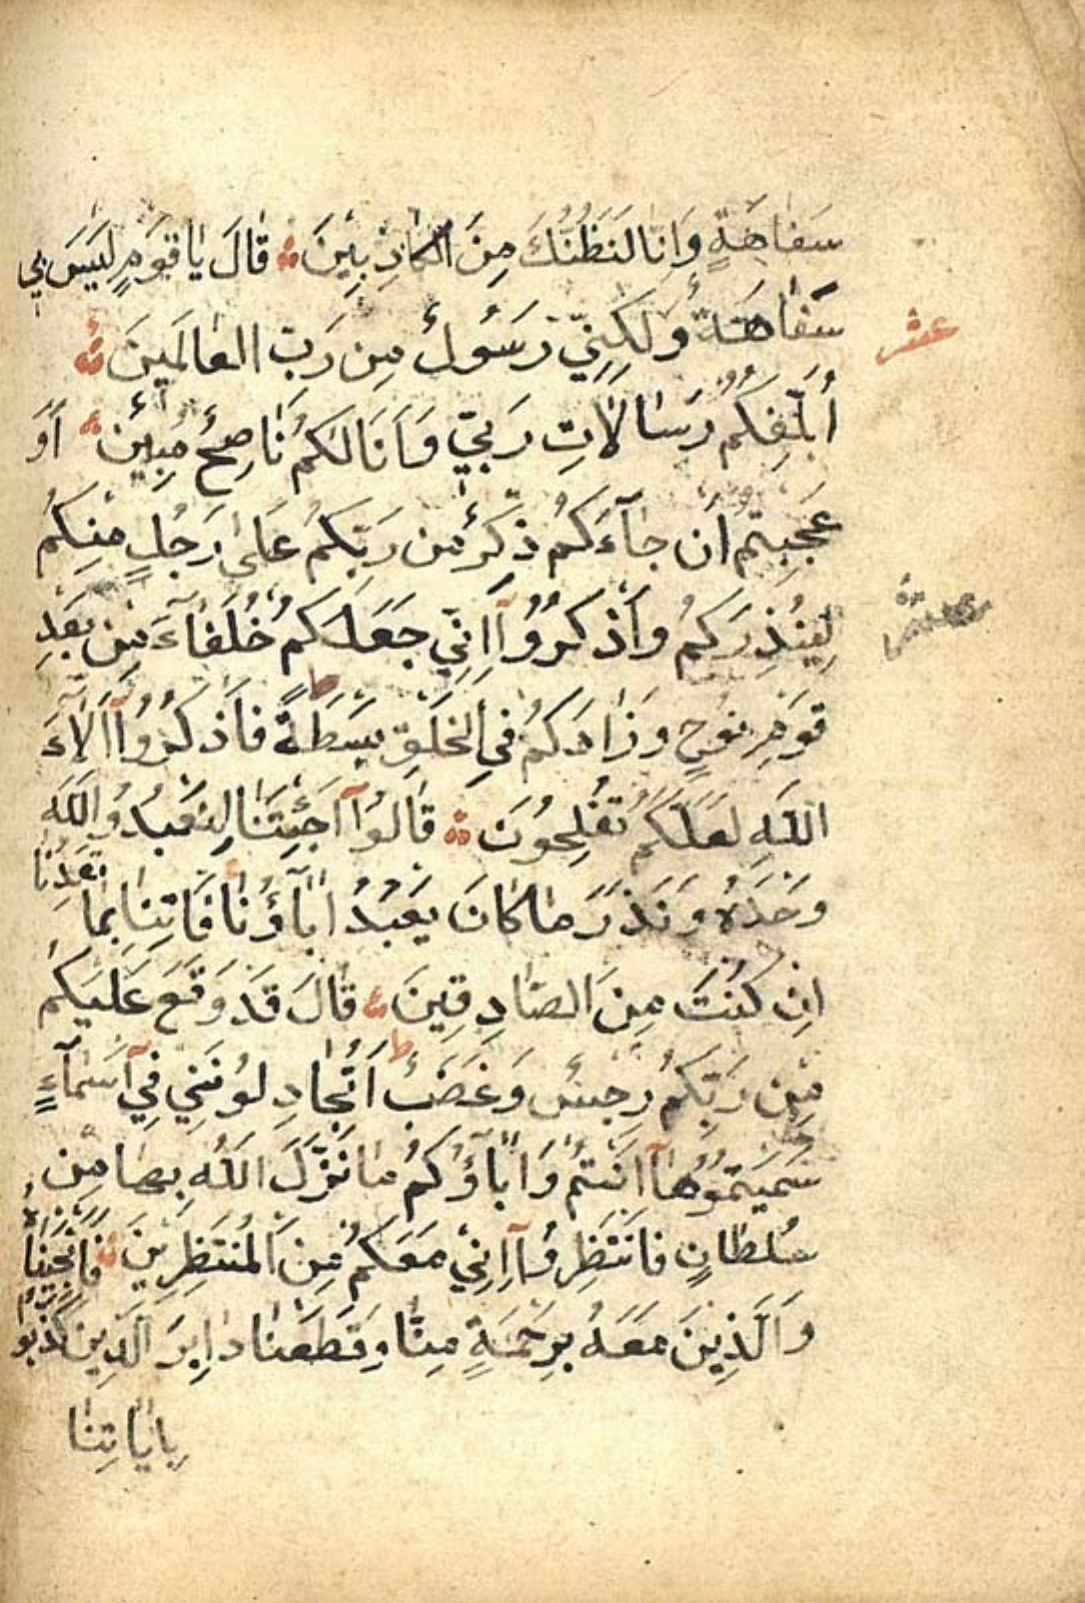 سَفَاهَةٍ وَاِنَّا لَنَظُنُّكَ مِنَ الْكَاذِبِينَ قَالَ يَا قَوْمِ لَيْسَ بِي
سَفَاهَةٌ وَلَكِنِّي رَسُولٌ مِن رَبِّ الْعَالَمِينَ
عشر
أُبَلِّغُكُمْ رِسَالَاتِ رَبِّي وَاَنَا لَكُمْ نَاصِحٌ مُبِينٌ اَوَ
عَجِبْتُمْ اَن جَآءَكُمْ ذِكْرٌ مِن رَبِّكُمْ عَلَى رَجُلٍ مِنْكُمْ
لِيُنْذِرَكُمْ وَاذْكُرُوُآ اِنِّي جَعَلَكُمْ خُلَفَآءَ مِن بَعْدِ
عشر
قَوْمِ نُوحٍ وَزَادَكُمْ فِي الْخَلْقِ بَسْطَةً ط فَاذْكُرُوُآ اَلَآءَ
اللَّهِ لَعَلَّكُمْ تُفْلِحُونَ قَالُوُآ اَجِئْتَنَا لِنَعْبُدُو اللَّهَ
وَحْدَهُ وَنَذَرَ مَا كَانَ يَعْبُدُ اٰبَآؤُنَا فَاتِنَا بِمَا تَعِدُنَا
اِن كُنْتَ مِنَ الصَّادِقِينَ قَالَ قَدْ وَقَعَ عَلَيْكُمْ
مِن رَبِّكُمْ رِجْسٌ وَغَضَبٌ ط اَتُجَادِلُونَنِي فِي آسْمَآءٍ
سَمَّيْتُمُوُهَآ اَنْتُمْ وَاٰبَآؤُكُمْ مَا نَزَّلَ اللَّهُ بِهَا مِن
سُلْطَانٍ فَانْتَظِرُوُآ اِنِّي مَعَكُمْ مِنَ الْمُنْتَظِرِينَ فَاَنْجَيْنَاهُ
وَالَّذِينَ مَعَهُ بِرَحْمَةٍ مِنَّا وَقَطَعْنَا دَابِرَ الَّذِينَ كَذَّبُوا
بِاٰيَاتِنَا